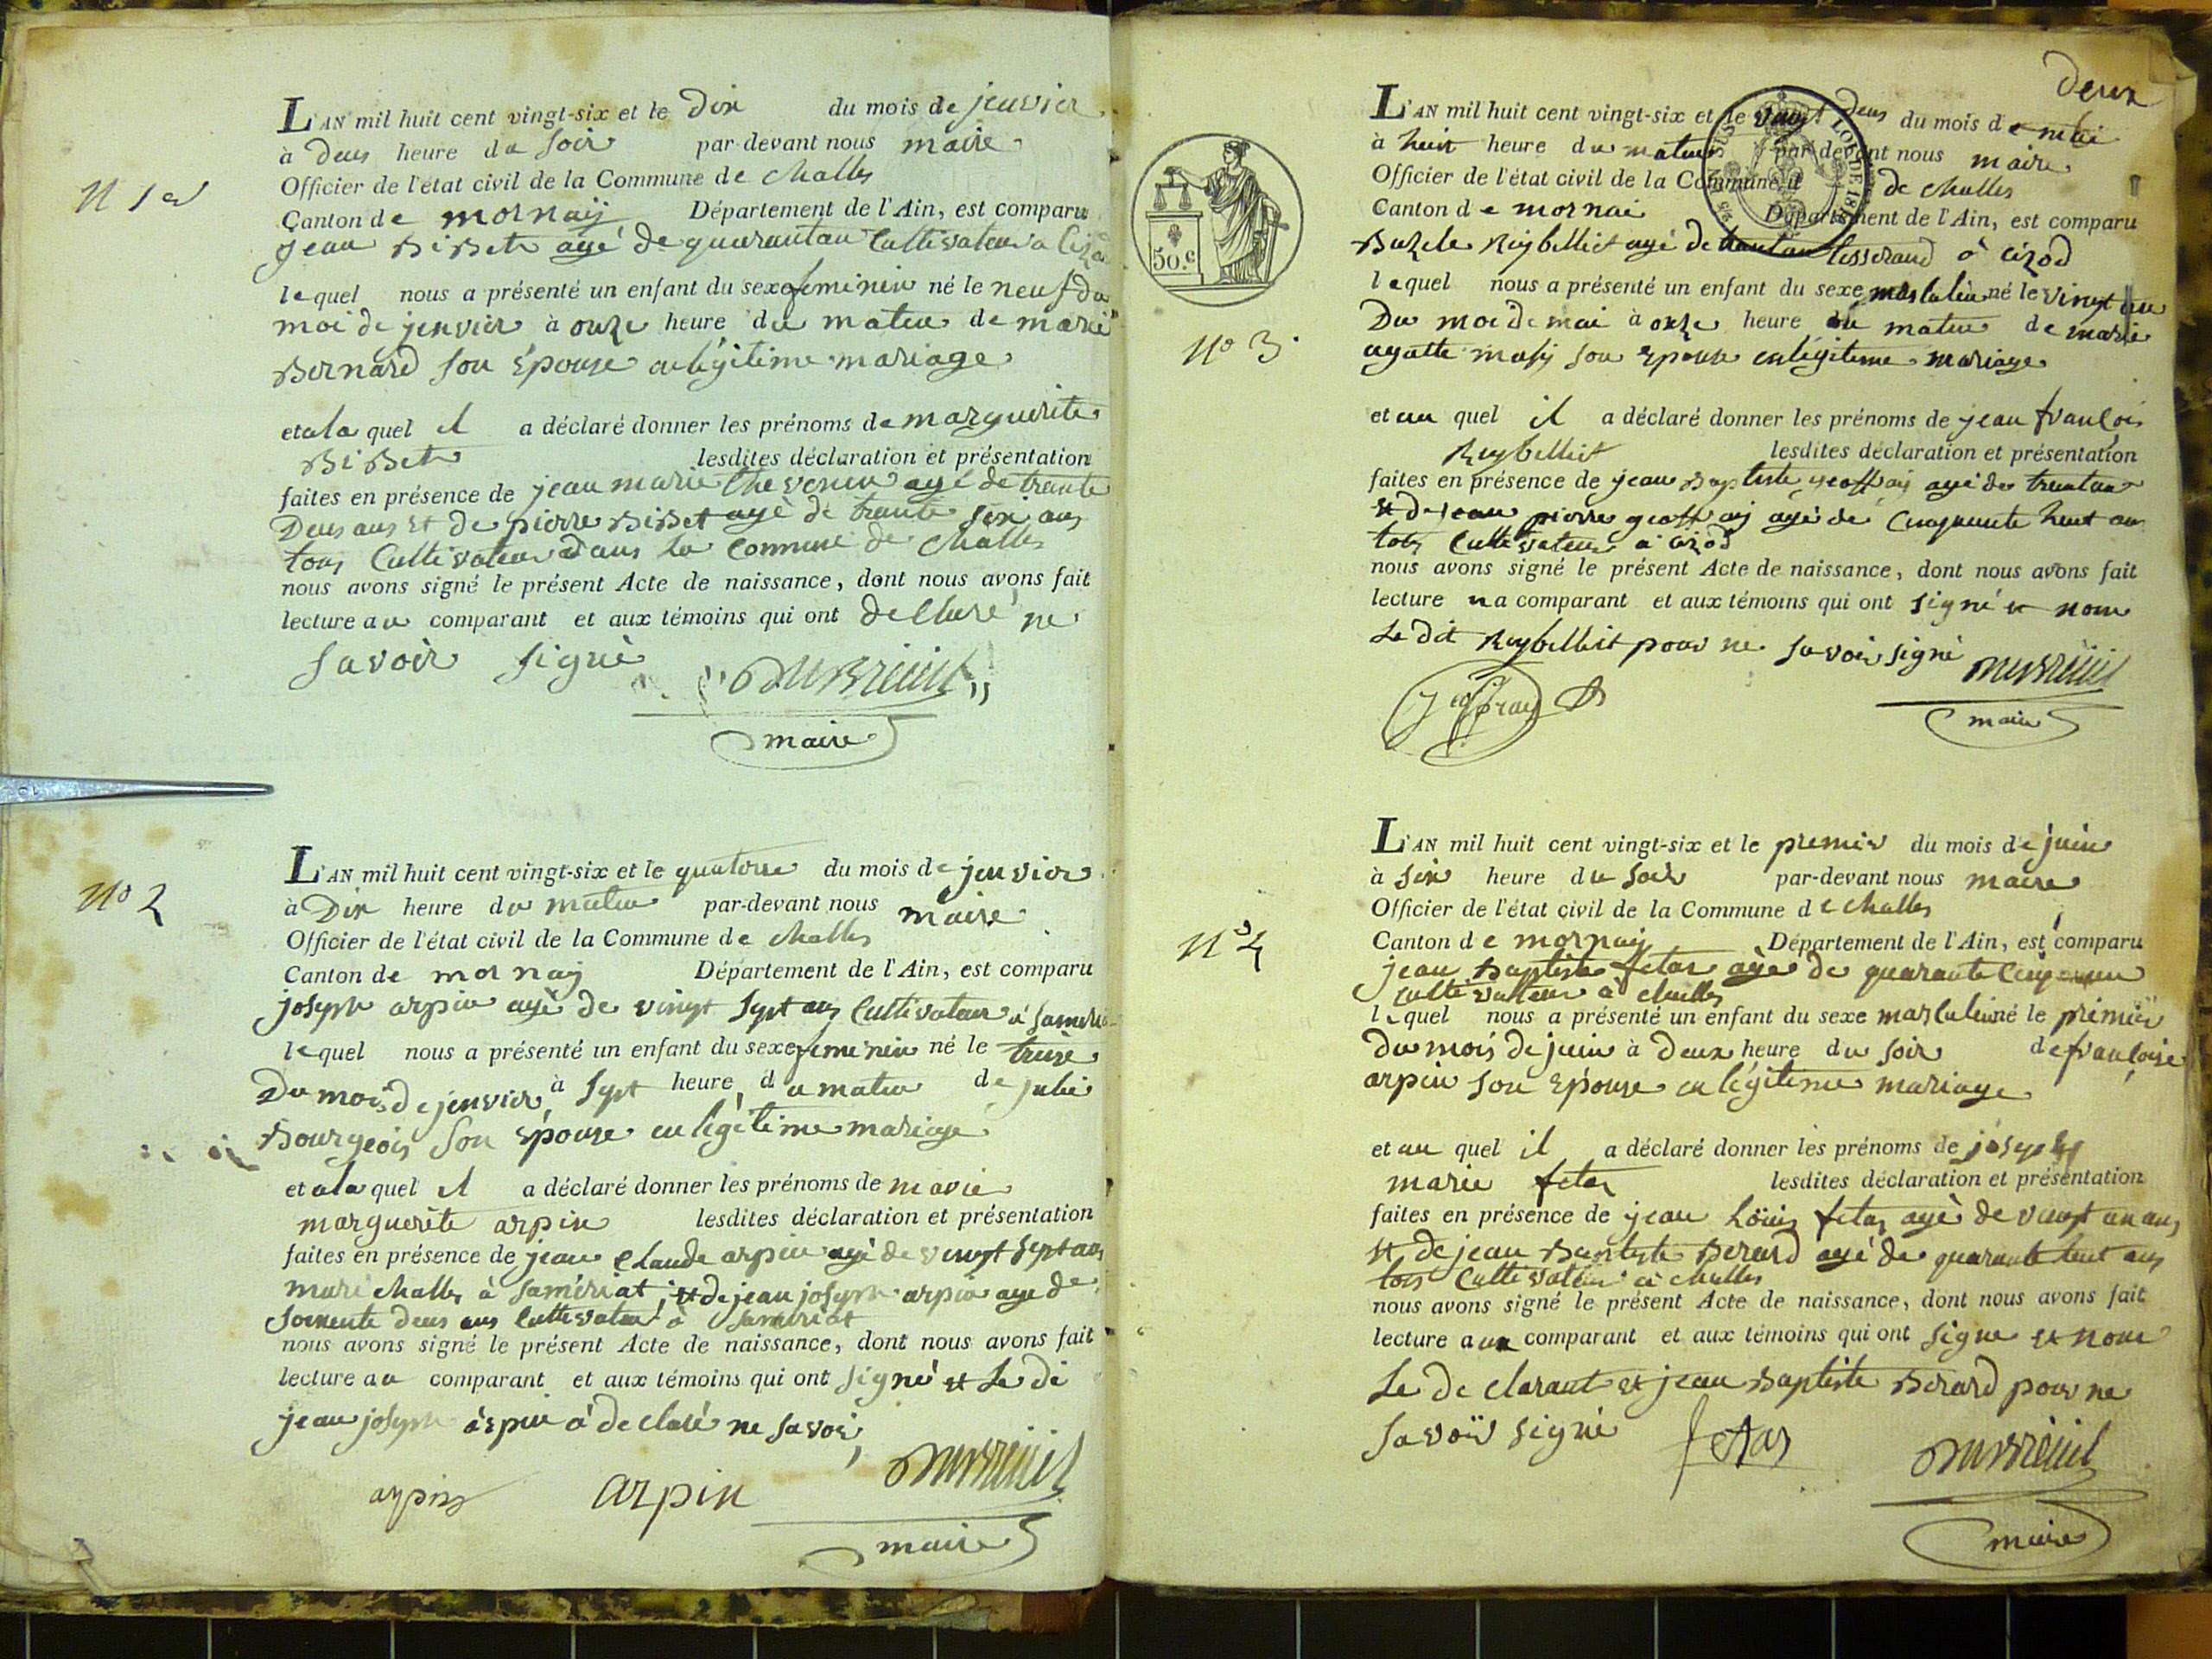 N 1er
L'AN mil huit cent vingt-six et le Dix du mois de jenvier
à Deus heure du soir par-devant nous maire
Officier de l'état civil de la Commune de challes
Canton de mornaÿ Département de l'Ain, est comparu
jean Bisset agé de quarantan Cultivateur a
lequel nous a présenté un enfant du sexe feminin né le neuf du
moi de jenvier à onze heure du matin de marie
Bernard son Épouse en légitime mariage
et a la quel il a déclaré donner les prénoms de marguerite
Bisset lesdites déclaration et présentation
faites en présence de jean marie thevenin agé de trante
Deus ans Et de pierre Bisset agé de trante six ans
tous Cultivateur Dans la Commune de Challes
nous avons signé le présent Acte de naissance, dont nous avons fait
lecture au comparant et aux témoins qui ont declaré ne
savoir signé
Dubreüil
maire
No 2
L'AN mil huit cent vingt-six et le quatorse du mois de jenvier
à Dix heure du matin par-devant nous maire
Officier de l'état civil de la Commune de challes
Canton de mornaÿ Département de l'Ain, est comparu
joseph arpin agé de vingt sept ans Cultivateur à
lequel nous a présenté un enfant du sexe feminin né le treize
Du mois de jenvier à sept heure du matin de julie
Bourgeois son Épouse en légitime mariage
et a la quel il a déclaré donner les prénoms de marie
marguerite arpin lesdites déclaration et présentation
faites en présence de jean claude arpin agé de vingt sept ans
marichalles à samériat, Et de jean joseph arpin agé de
soixente deus ans Cultivateur à samériat
nous avons signé le présent Acte de naissance, dont nous avons fait
lecture au comparant et aux témoins qui ont signé et Le di
jean joseph arpin à declaré ne savoir
arpin arpin Dubreüil
maire
deux
50.c
LOI DE
No 3
L'AN mil huit cent vingt-six et le vingt deus du mois de mai
à huit heure du matin par-devant nous maire
Officier de l'état civil de la Commune de challes
Canton de mornai Département de l'Ain, est comparu
Reybellist agé de tisserand à cizod
lequel nous a présenté un enfant du sexe masculin né le vingt un
Du moi de mai à onze heure du matin de marie
agatte son Épouse en légitime mariage
et au quel il a déclaré donner les prénoms de jean françois
Reybellist lesdites déclaration et présentation
faites en présence de jean Baptiste geoffraÿ agé de trantan
Et de jean pierre geoffraÿ agé de cinquente huit ans
tous Cultivateur à cizod
nous avons signé le présent Acte de naissance, dont nous avons fait
lecture au comparant et aux témoins qui ont signé et non
Le dit Reybellist pour ne savoir signé
Dubreüil
maire
No 4
L'AN mil huit cent vingt-six et le premier du mois de juin
à six heure du soir par-devant nous maire
Officier de l'état civil de la Commune de challes
Canton de mornaÿ Département de l'Ain, est comparu
jean Baptiste fetas agé de quarante
cultivatteur à challes
lequel nous a présenté un enfant du sexe masculin né le premier
du mois de juin à deux heure du soir de françoise
arpin son Épouse en légitime mariage
et au quel il a déclaré donner les prénoms de joseph
marie fetas lesdites déclaration et présentation
faites en présence de jean Löuis fetas agé de vingt un ans
Et de jean Baptiste Berard agé de quarante huit ans
tous Cultivateur à challes
nous avons signé le présent Acte de naissance, dont nous avons fait
lecture au comparant et aux témoins qui ont signé et non
Le declarant et jean Baptiste Berard pour ne
savoir signé fetas Dubreüil
maire